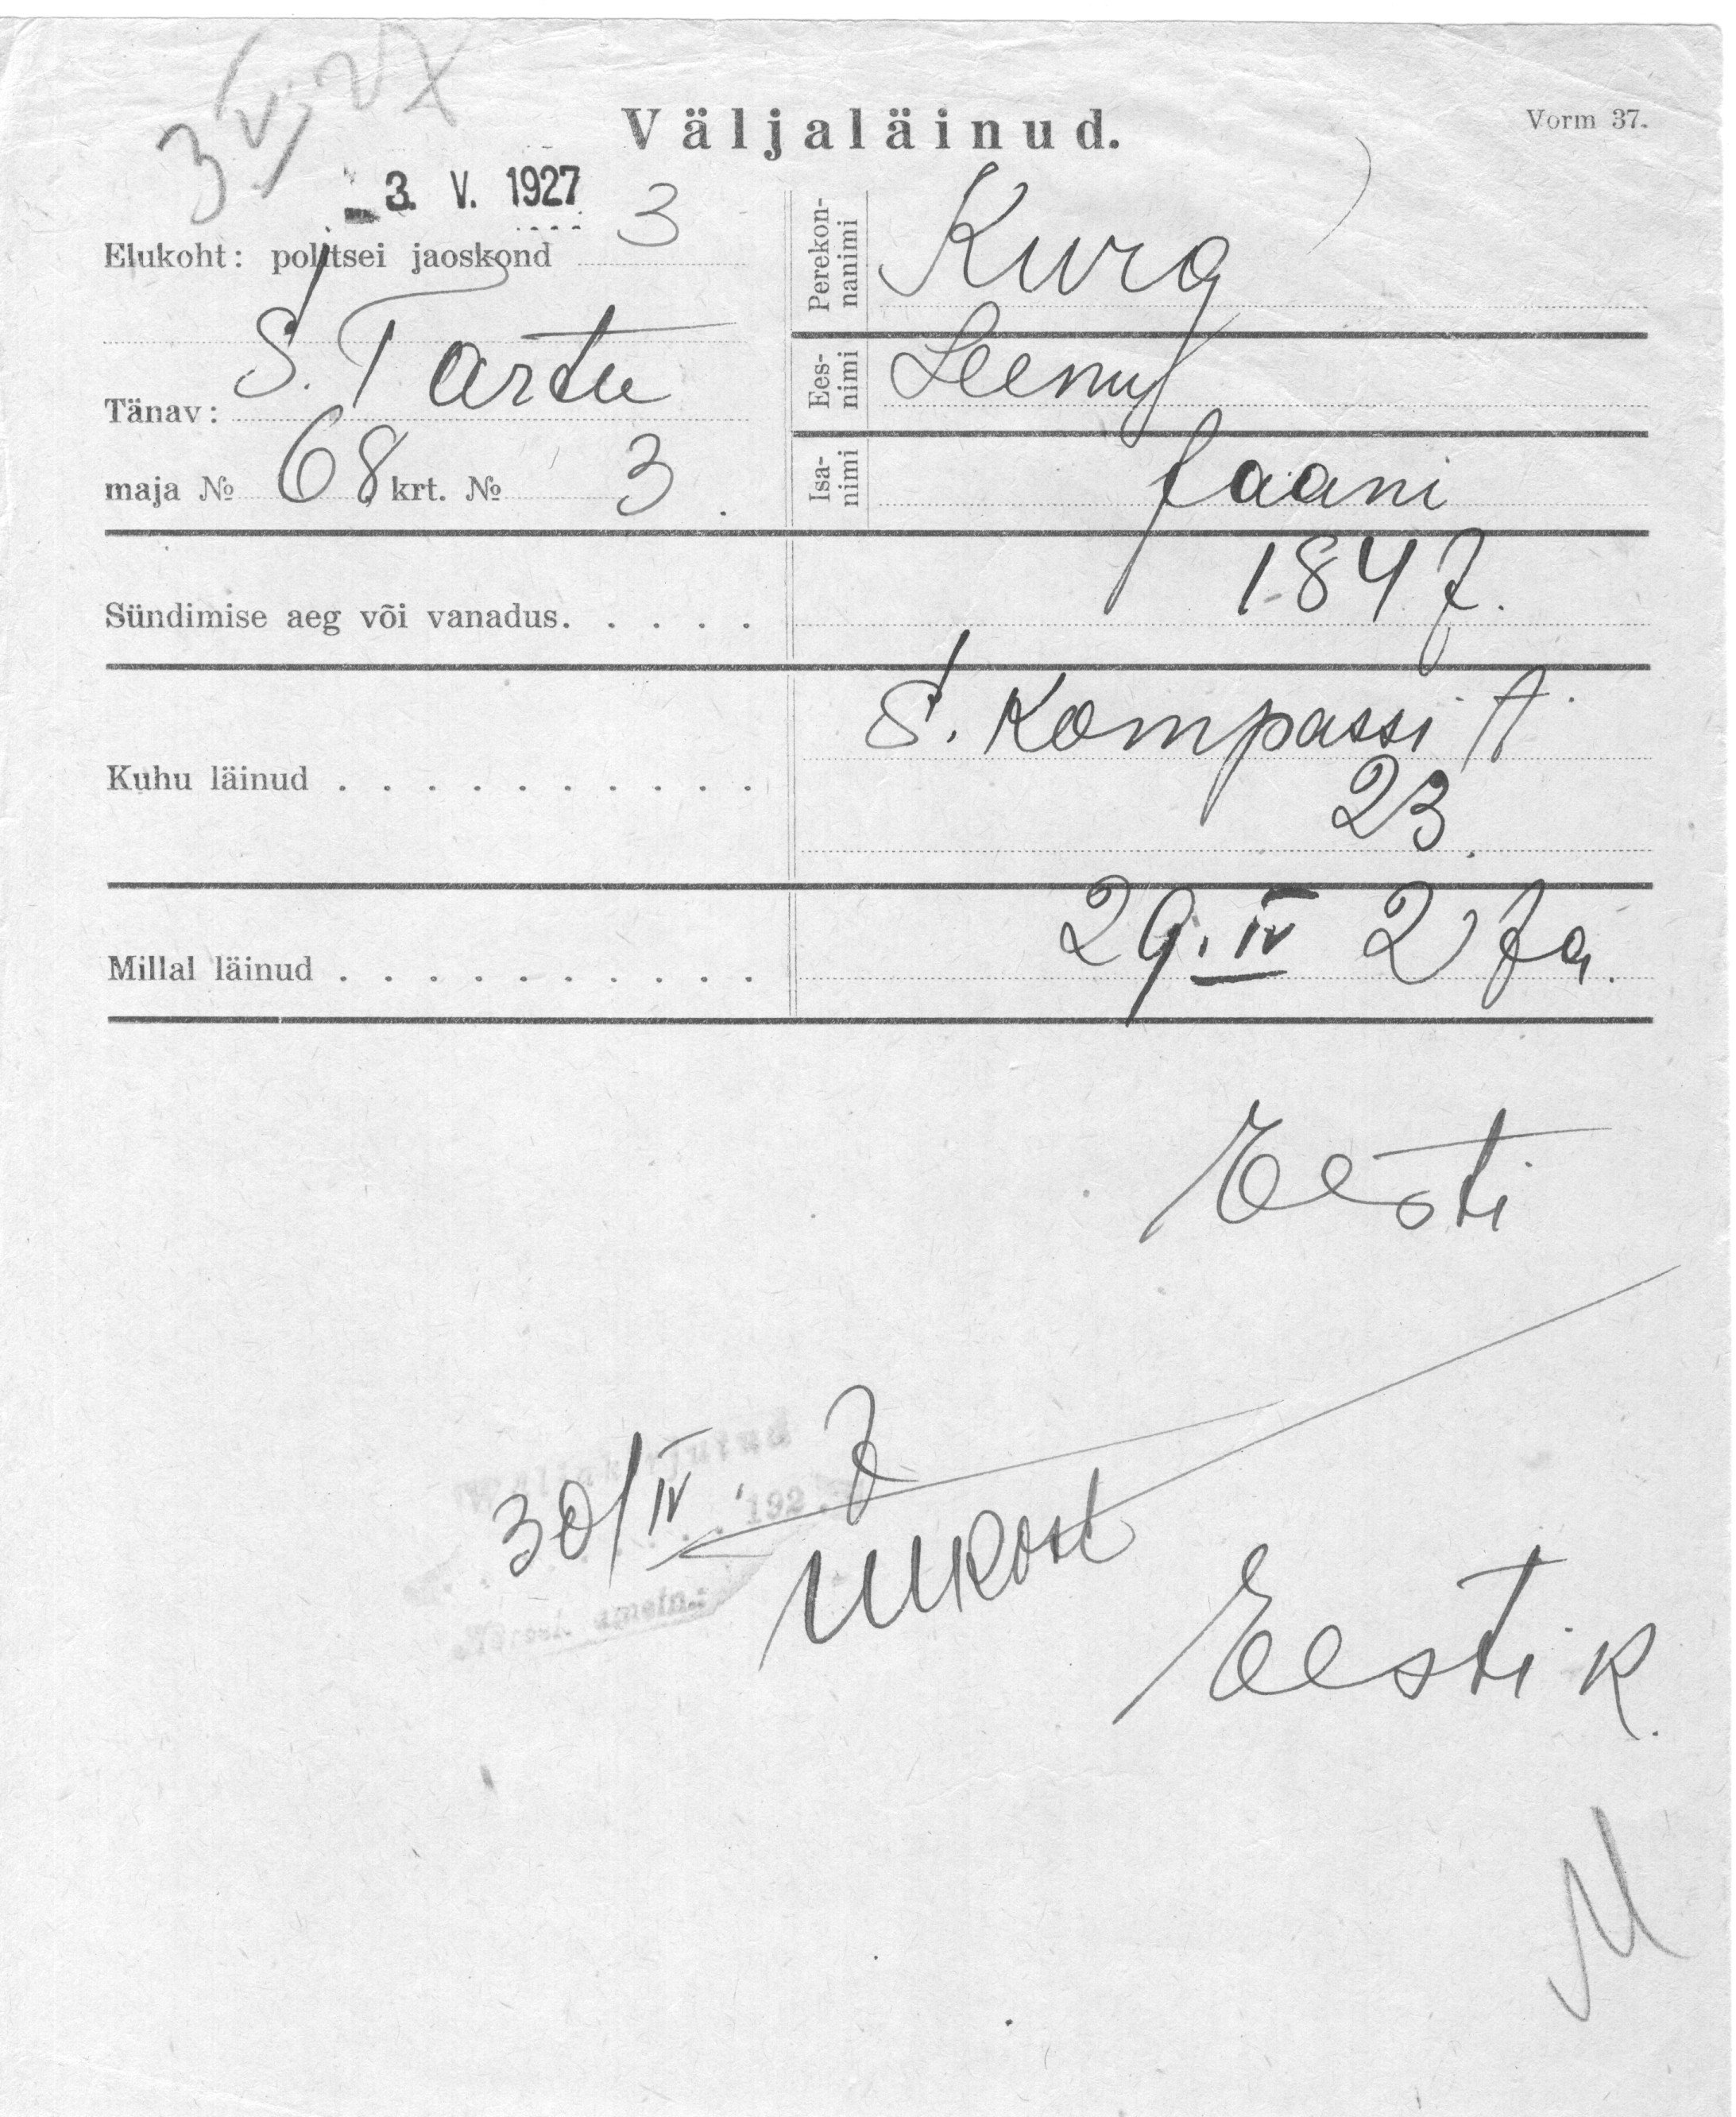 3/V 27
Väljaläinud.
Vorm 37.
3. V. 1927
Elukoht: politsei jaoskond 3
S. Tartu
Tänav:
maja № 68 krt. № 3.
Perekon-
nanimi
Kurg
Ees-
nimi
Leenu
Isa-
nimi
Jaani
Sündimise aeg või vanadus. . . . .
1847.
Kuhu läinud . . . . . . . . . .
S. Kompassi t.
23.
Millal läinud . . . . . . . . . .
29. IV 27 a.
Eesti
30/IV 7
192
Eesti k.
M